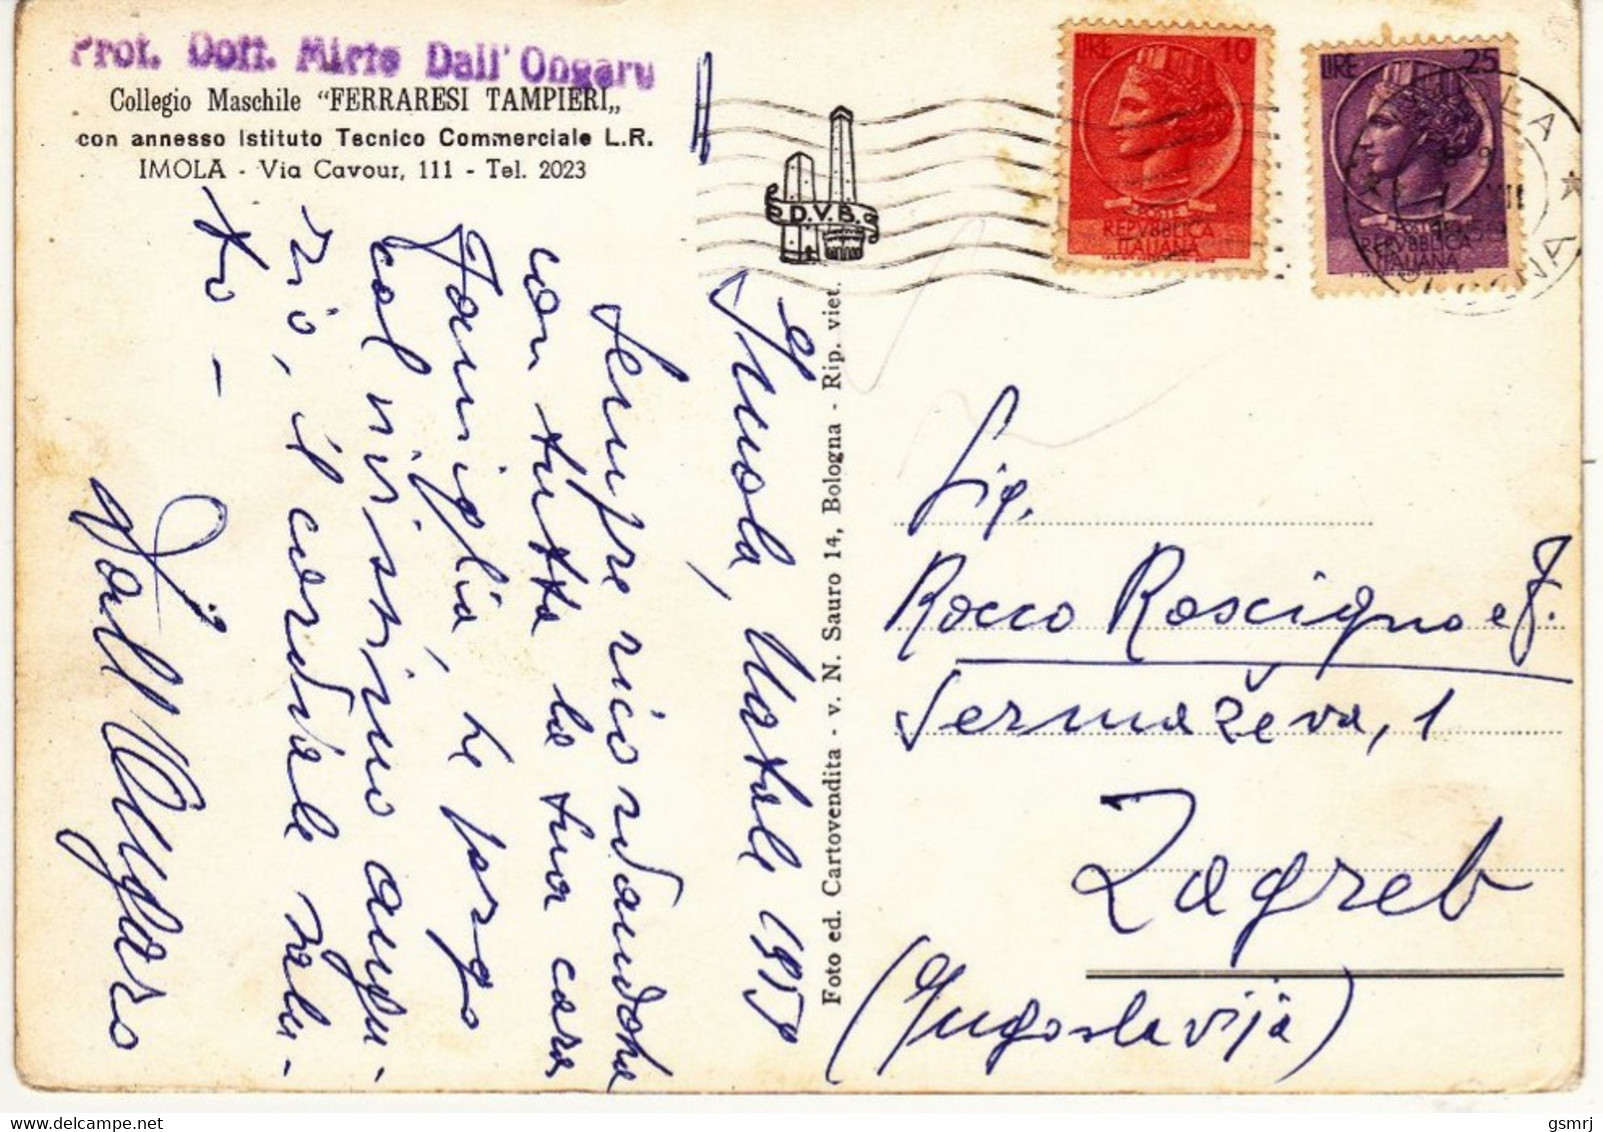 Prof. Dott. Mirto Dall'Ongaro
Collegio Maschile “FERRARESI TAMPIERI„
con annesso Istituto Tecnico Commerciale L.R.
IMOLA - Via Cavour, 111 - Tel. 2023
Imola, Natale 1959
Sempre ricordandola
con tutta la sua cara
Famiglia, Le porgo
col vivissimo augu-
rio, il cordiale salu-
to -
Dall'Ongaro
D.V.B.
Foto ed. Cartovendita - v. N. Sauro 14, Bologna - Rip. viet.
LIRE 10
POSTE
REPVBBLICA
ITALIANA
LIRE 25
POSTE
REPVBBLICA
ITALIANA
Sig.
Rocco Roscigno e F.
Sermaževa, 1
Zagreb
(Jugoslavija)
gsmrj